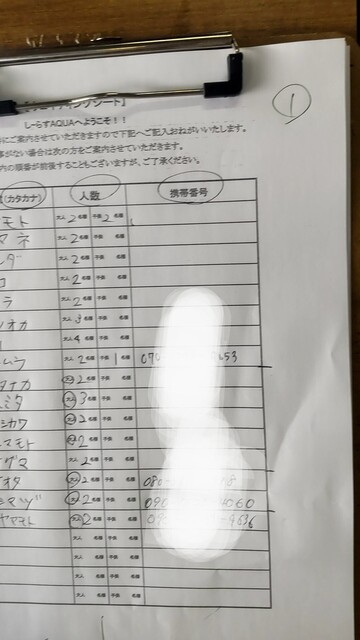 ①
ィングシート』
しーらすAQUAへようこそ！！
にご案内させていただきますので下記へご記入おねがいいたします。
事がない場合は次の方をご案内させていただきます。
内の順番が前後することもございますが、ご了承ください。
(カタカナ) 人数 携帯番号
モト 大人 2 名様 子供 2 名様
マネ 大人 2 名様 子供 名様
ダー 大人 2 名様 子供 名様
コ 大人 2 名様 子供 名様
ラ 大人 2 名様 子供 名様
オカ 大人 3 名様 子供 名様
大人 4 名様 子供 名様
ムラ 大人 2 名様 子供 1 名様 070 53
タナカ 大人 2 名様 子供 名様
ミタ 大人 3 名様 子供 名様
シカワ 大人 2 名様 子供 名様
マモト 大人 2 名様 子供 名様
グマ 大人 2 名様 子供 名様
オタ 大人 2 名様 子供 名様 080- 8
マヅ 大人 2 名様 子供 名様 090 4060
ヤマモト 大人 2 名様 子供 名様 -4636
大人 名様 子供 名様
大人 名様 子供 名様
大人 名様 子供 名様
大人 名様 子供 名様